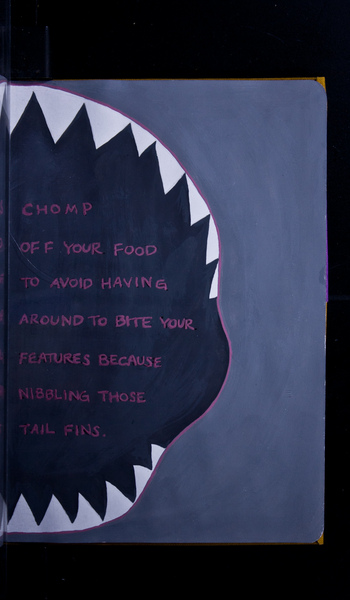 CHOMP
OFF YOUR FOOD
TO AVOID HAVING
AROUND TO BITE YOUR
FEATURES BECAUSE
NIBBLING THOSE
TAIL FINS.